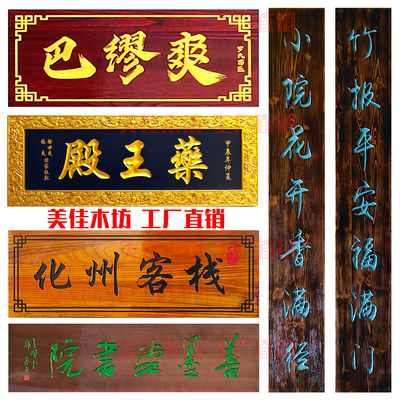 爽繆巴
藥王殿
美佳木坊 工厂直销
化州客栈
善墨堂書院
竹报平安福满门
小院花开香满径